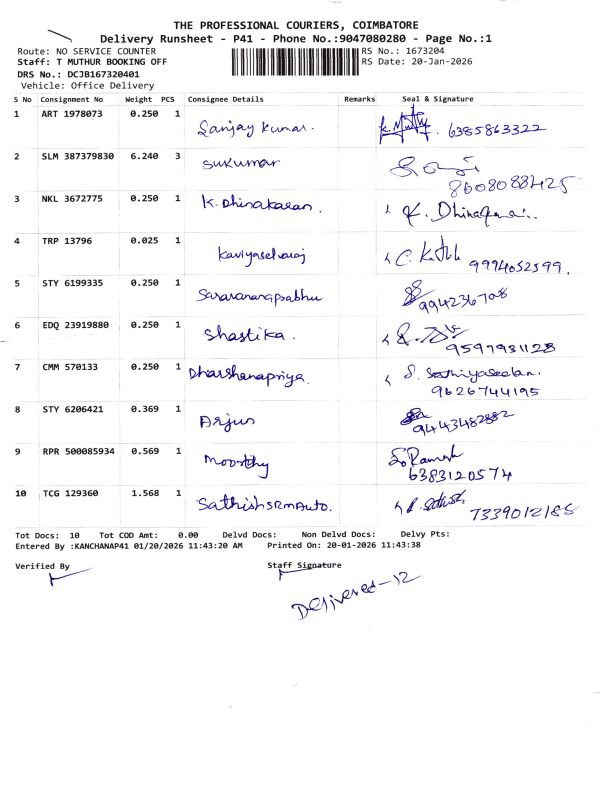 THE PROFESSIONAL COURIERS, COIMBATORE
Delivery Runsheet - P41 - Phone No.:9047080280 - Page No.:1
Route: NO SERVICE COUNTER RS No.: 1673204
Staff: T MUTHUR BOOKING OFF RS Date: 20-Jan-2026
DRS No.: DCJB167320401
Vehicle: Office Delivery
S No Consignment No Weight PCS Consignee Details Remarks Seal & Signature
1 ART 1978073 0.250 1 Sanjay Kumar. 6385863322
2 SLM 387379830 6.240 3 Sukumar 8608088425
3 NKL 3672775 0.250 1 K. Dhinakaran. K. Dhina
4 TRP 13796 0.025 1 Kaviyaselvaraj 9994052599.
5 STY 6199335 0.250 1 Saravanaprabhu 994236708
6 EDQ 23919880 0.250 1 Shastika. 9597931128
7 CMM 570133 0.250 1 Dharshanapriya. S. Sathiyaseelan.
9626744195
8 STY 6206421 0.369 1 Arjun 9443482882
9 RPR 500085934 0.569 1 Moorthy Ramesh
6383120574
10 TCG 129360 1.568 1 SathishSRMAuto. Sathish
7339012185
Tot Docs: 10 Tot COD Amt: 0.00 Delvd Docs: Non Delvd Docs: Delvy Pts:
Entered By :KANCHANAP41 01/20/2026 11:43:20 AM Printed On: 20-01-2026 11:43:38
Verified By Staff Signature
Delivered-12